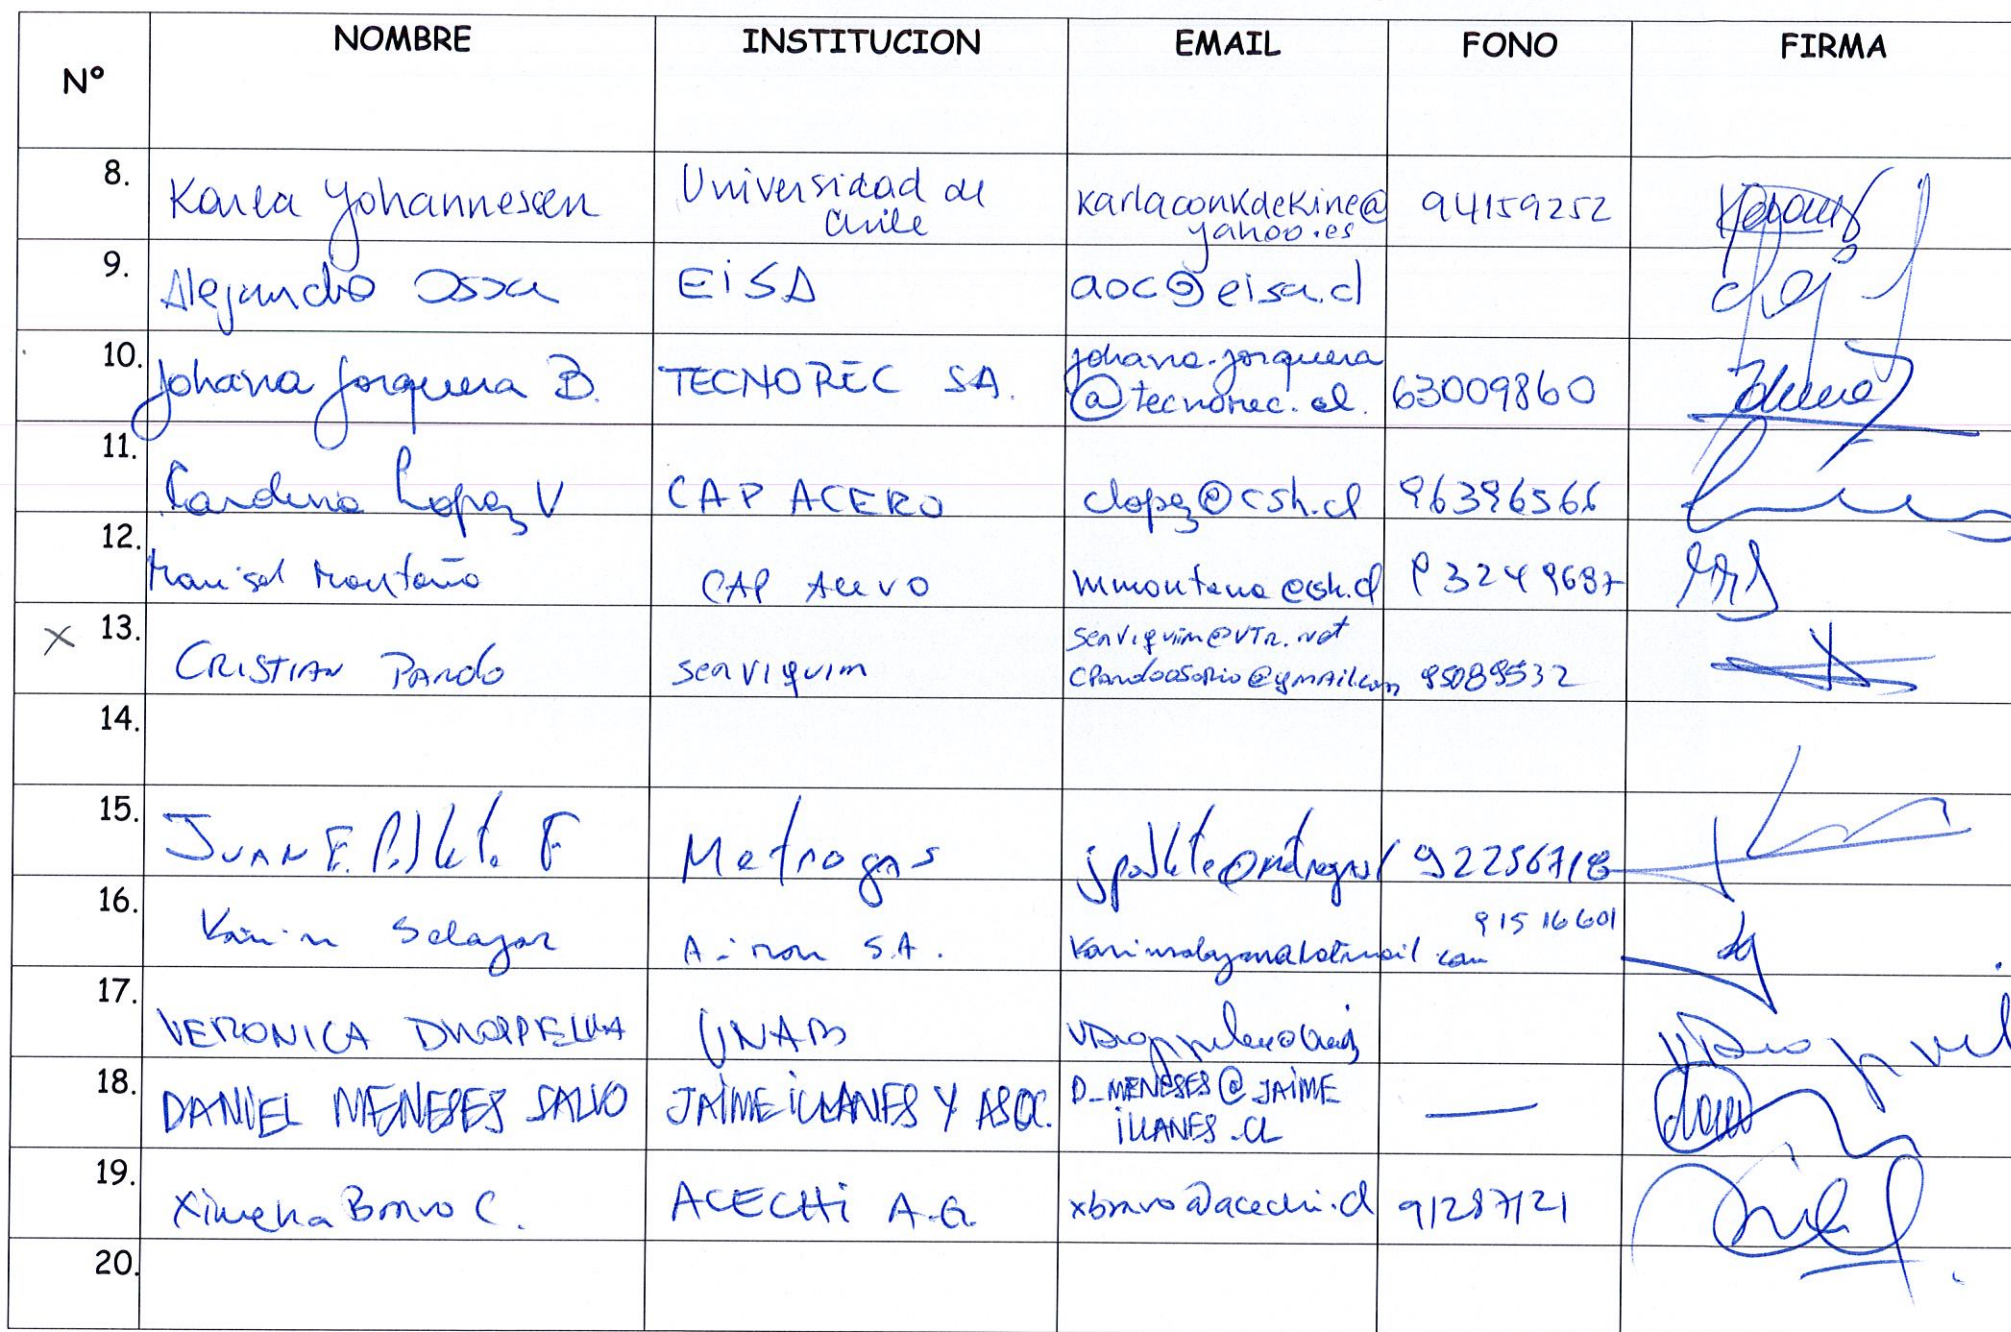 Nº NOMBRE INSTITUCION EMAIL FONO FIRMA
8. Karla Yohannessen Universidad de Chile karlaconkdekine@yahoo.es 94159252
9. Alejandro Ossa EISA aoc@eisa.cl
10. Johana Jorquera B. TECNOREC SA. johana.jorquera@tecnorec.cl. 63009860
11. Carolina Lopez V CAP ACERO clopez@csh.cl 96396566
12. Marisol Montaño CAP Acero mmontano@csh.cl 93249687
X 13. CRISTIAN PARDO serviquim serviquim@VTR.net
CPardoosorio@gmail.com 95089532
14.
15. JUAN E. F Metrogas 92256718
16. Karin Salazar S.A. 91516601
17. VERONICA UNAB
18. DANIEL MENESES SALVO JAIME ILLANES Y ASOC. D_MENESES@JAIMEILLANES.CL —
19. Ximena Bravo C. ACECHI A.G. xbravo@acechi.cl 91287121
20.